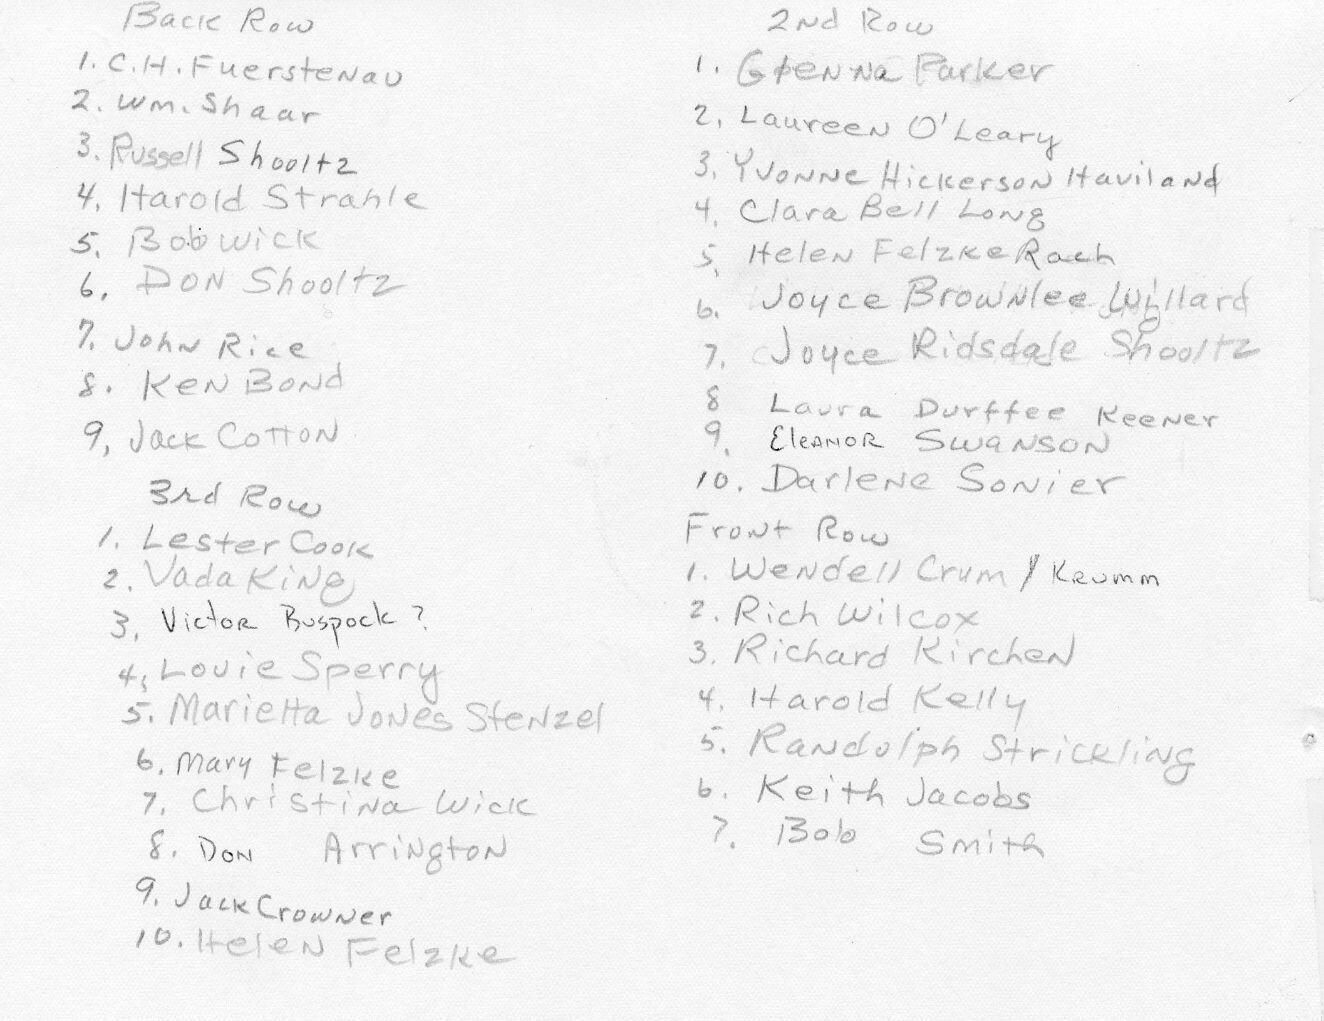 Back Row
1. C.H. Fuerstenau
2. Wm. Shaar
3. Russell Shooltz
4. Harold Strahle
5. Bob Wick
6. Don Shooltz
7. John Rice
8. Ken Bond
9, Jack Cotton
3rd Row
1. Lester Cook
2. Vada King
3, Victor Buspock?
4, Louie Sperry
5. Marietta Jones Stenzel
6. Mary Felzke
7. Christina Wick
8. Don Arrington
9. Jack Crowner
10. Helen Felzke
2nd Row
1. Glenna Parker
2, Laureen O'Leary
3, Yvonne Hickerson Haviland
4. Clara Bell Long
5, Helen Felzke Rach
6. Joyce Brownlee Willard
7, Joyce Ridsdale Shooltz
8 Laura Durffee Keener
9. Eleanor Swanson
10. Darlene Sonier
Front Row
1. Wendell Crum / Krumm
2. Rich Wilcox
3. Richard Kirchen
4. Harold Kelly
5. Randolph Strickling
6. Keith Jacobs
7. Bob Smith